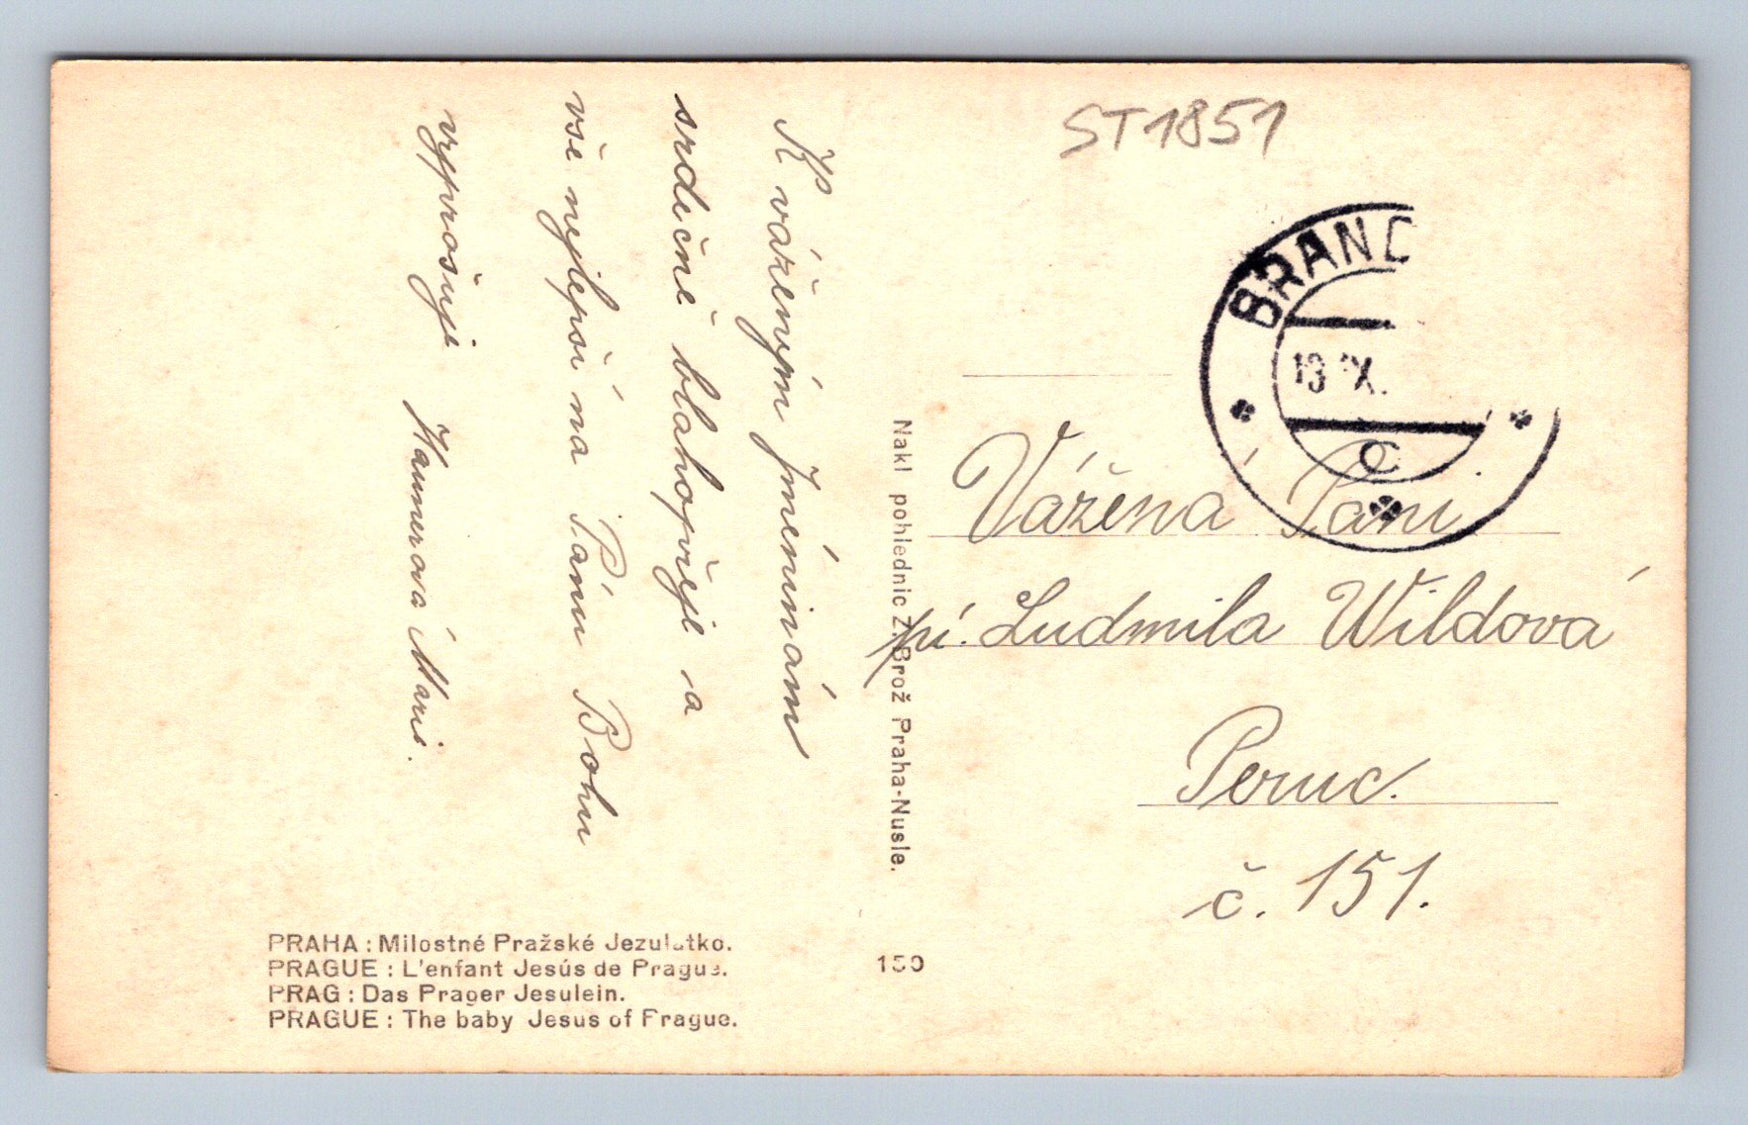 K váženým Jmeninám
srdečně blahopřeje a
vše nejlepší na Pánu Bohu
vyprošuje Hamerová Mari.
ST1851
BRAND
13 IX.
C
Vážená Paní
pí. Ludmila Wildová
Peruc.
č. 151.
Nakl pohlednic Z. Brož Praha-Nusle.
PRAHA : Milostné Pražské Jezulátko.
PRAGUE : L'enfant Jesús de Prague.
PRAG : Das Prager Jesulein.
PRAGUE : The baby Jesus of Prague.
150